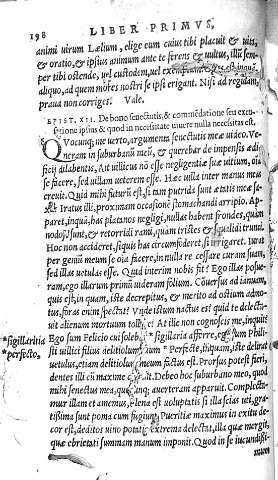 198 LIBER PRIMVS,
animi virum Lælium, elige eum cuius tibi placuit & vita,
& oratio, & ipsius animum ante te ferens & vultus, illũ sem-
per tibi ostende, vel custodem, vel exemplum
aliquo, ad quem mores nostri se ipsi erigant. Nisi ad regulam,
praua non corriges. Vale.
EPIST. XII. De bono senectutis, & commẽdatione seu exce-
ptione ipsius & quod in necessitate viuere nulla necessitas est.
QVocunq; me verto, argumenta senectutis meæ video. Ve-
neram in suburbanũ meũ, & querebar de impensis ædi-
ficij dilabentis, Ait villicus nõ esse negligentiæ suæ vitium, oĩa
se facere, sed villam veterem esse. Hæc villa inter manus meas
creuit. Quid mihi futurũ est, si tam putrida sunt ætatis meæ sa-
xa? Iratus illi, proximam occasionẽ stomachandi arripio. Ap-
paret, inquã, has platanos negligi, nullas habent frondes, quàm
nodosi sunt, & retorridi rami, quàm tristes & squalidi trunci.
Hoc non accideret, si quis has circumfoderet, si irrigaret. Iurat
per geniũ meum se oĩa facere, in nulla re cessare curam suam,
sed illas vetulas esse. Quid interim nobis sit? Ego illas posue-
ram, ego illarum primũ videram folium. Cõuersus ad ianuam,
quis est, inquam, iste decrepitus, & meritò ad ostium admo-
tus, foras enim spectat? Vnde istum nactus es? quid te delecta-
uit alienum mortuum tollere? At ille non cognoscis me, inquit?
Ego sum Felicio cui solebas *sigillaria afferre, ego sum Philo-
siti villici filius deliciolum tuum. Perfectè, inquam, iste delirat
vetulus, etiam deliciolum meum factus est. Prorsus potest fieri,
dentes illi cũ maxime cadunt. Debeo hoc suburbano meo, quod
mihi senectus mea, quocunq; auerteram apparuit. Complecta-
mur illam, & amemus. Plena est voluptatis si illa scias vti, gra-
tissima sunt poma cum fugiunt. Pueritiæ maximus in exitu de-
cor est, deditos vino potatio extrema delectat, illa quæ mergit,
quæ ebrietati summam manum imponit. Quod in se iucundissi-
mum
*sigillaritia
*perfecto,